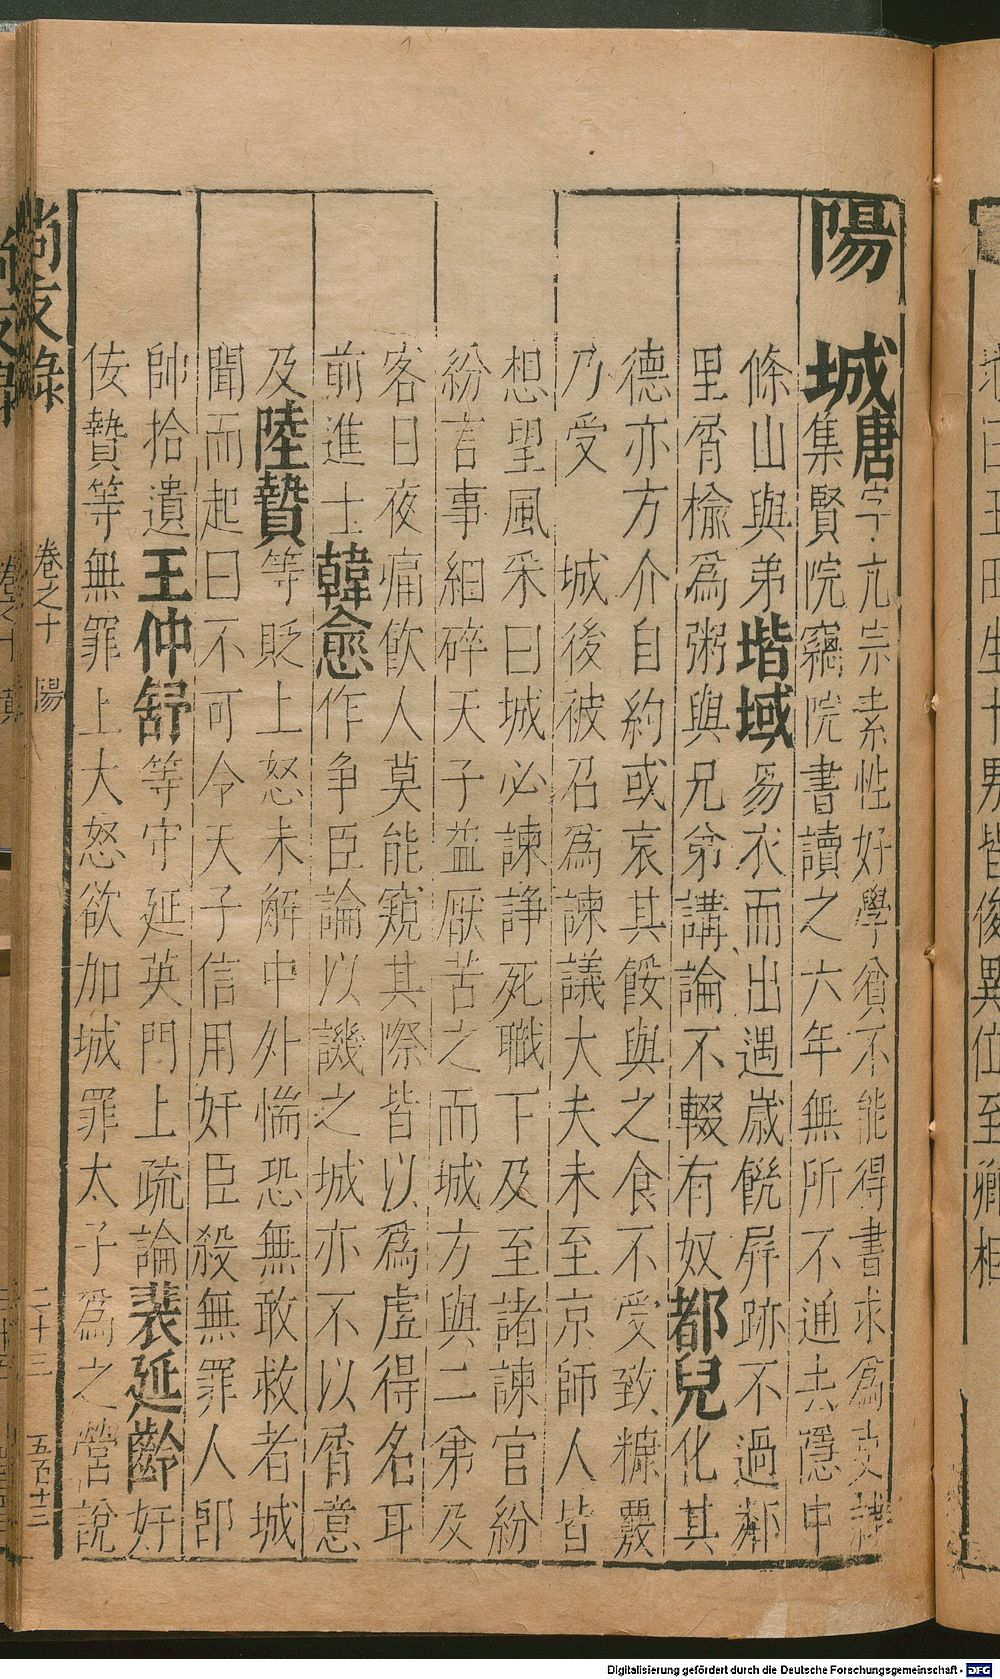 陽
城唐字亢宗素性好學貧不能得書求為吏隸
集賢院竊院書讀之六年無所不通去隱中
條山與弟堦域易衣而出遇歲饑屏跡不過鄰
里屑榆為粥與兄弟講論不輟有奴都兒化其
德亦方介自約或哀其餒與之食不受致糠覈
乃受　城後被召為諫議大夫未至京師人皆
想望風采曰城必諫諍死職下及至諸諫官紛
紛言事細碎天子益厭苦之而城方與二弟及
客日夜痛飲人莫能窺其際皆以為虛得名耳
前進士韓愈作爭臣論以譏之城亦不以屑意
及陸贄等貶上怒未解中外惴恐無敢救者城
聞而起曰不可令天子信用奸臣殺無罪人卽
帥拾遺王仲舒等守延英門上疏論裴延齡奸
佞贄等無罪上大怒欲加城罪太子為之營說
尚友錄
卷之十　陽
二十三
五百十三
尚友錄
卷之十
生十男皆俊異位至卿相
Digitalisierung gefördert durch die Deutsche Forschungsgemeinschaft - DFG